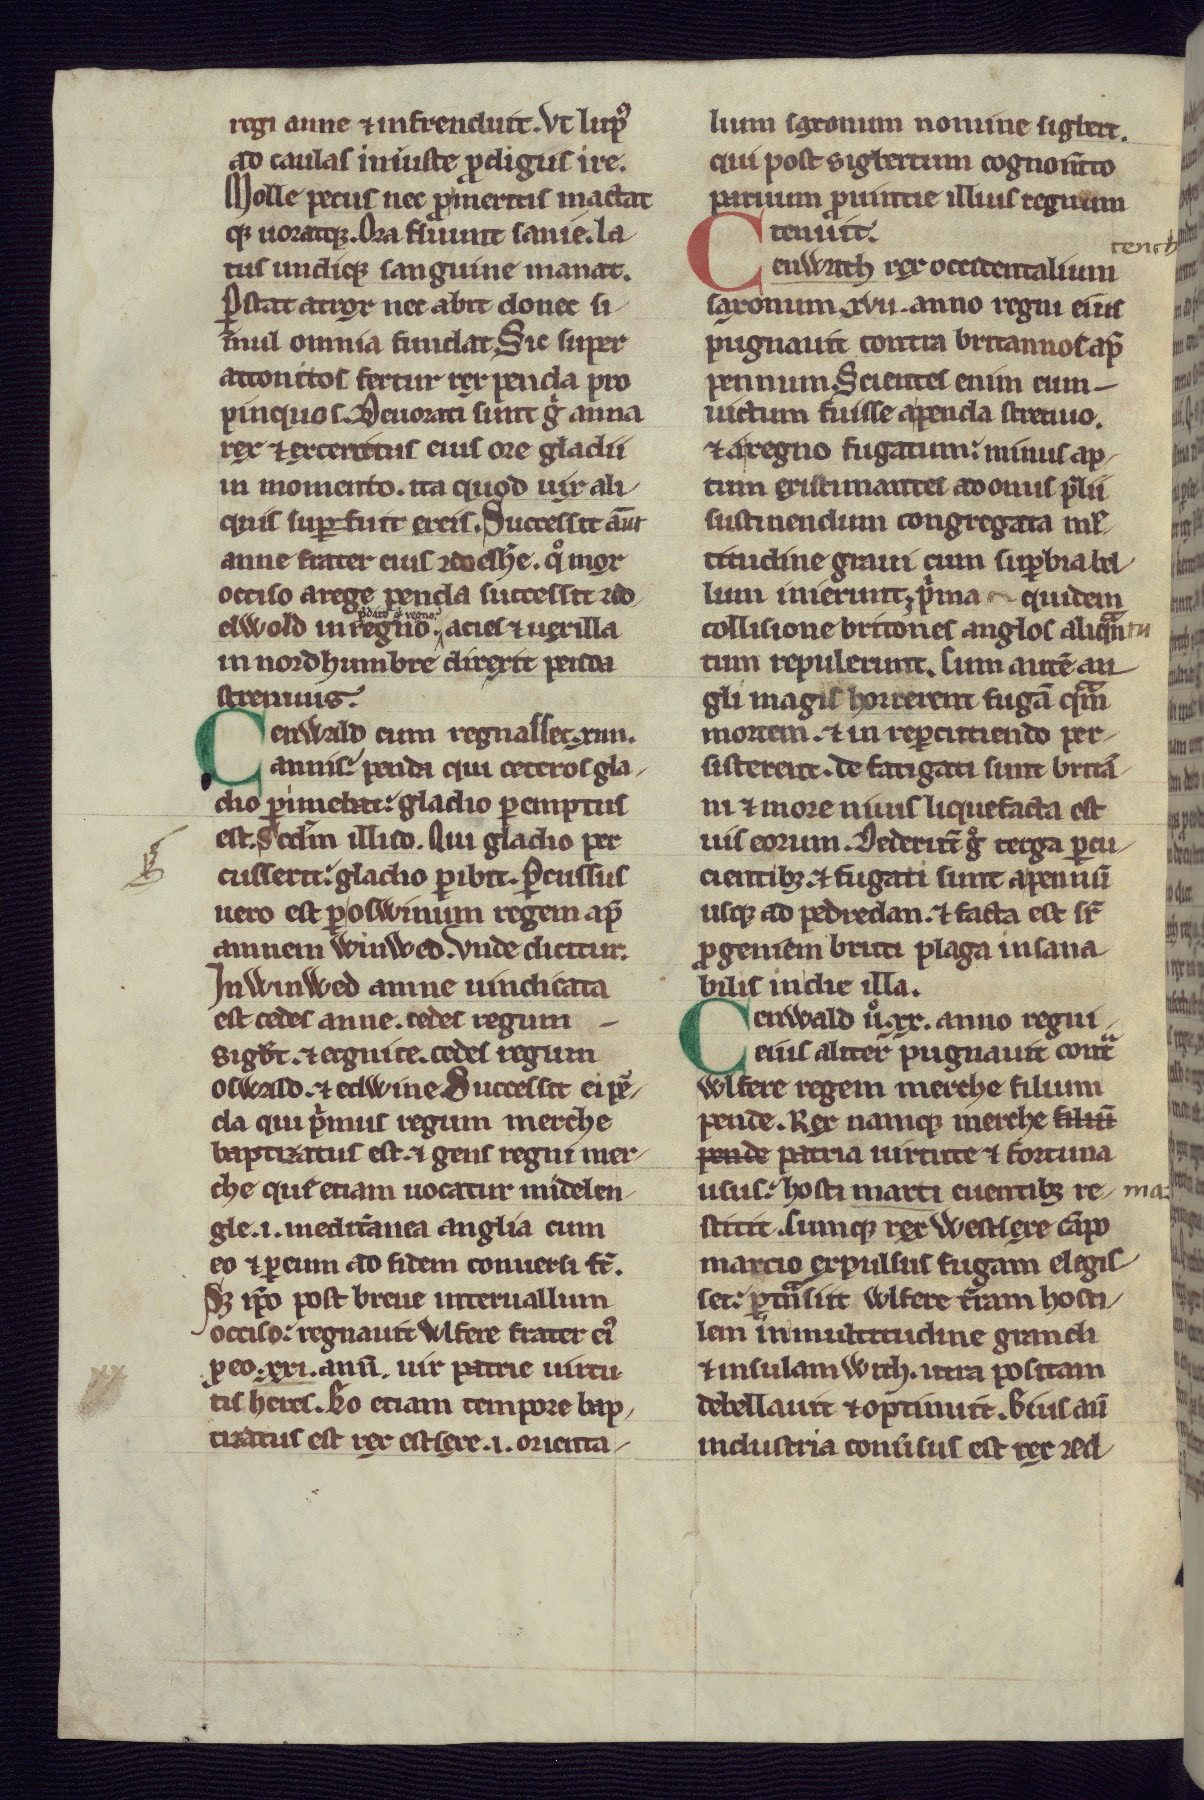 regi anne ⁊ infrenduit. Vt lupꝰ
ad caulas iniuste ꝓdigus ire.
Molle pecus nec ꝓmeritus mactat
qꝫ uoratqꝫ. Ora fluunt sanie. la
tus undiqꝫ sanguine manat.
P̄stat atrox nec abit donec si-
mul omnia fundat. Sic super
attonitos fertur rex penda pro
pinquos. Deuorati sunt gͦ anna
rex ⁊ exercitus eius ore gladii
in momento. ita quod uix ali-
quis suꝑfuit ex eis. Successit aūt
anne frater eius adelh̄e. qͦ mox
occiso a rege penda successit ad
elwold in regno. acies ⁊ uexilla
in nordhumbre direxit penda
strenuus.
Cenwald cum regnasset .xiiii.
annis: penda qui ceteros gla-
dio ꝑimebat: gladio ꝑemptus
est. Scd̄m illud. Qui gladio per
cusserit: gladio ꝑibit. Ꝑcussus
uero est ꝑ oswinum regem ap̄
amnem winwed. Vnde dicitur.
In winwed amne uindicata
est cedes anne. cedes regum -
sigb̄t. ⁊ ecgnice. cedes regum
oswald. ⁊ edwine. Successit ei pē-
da qui pͥmus regum merche
baptizatus est. ⁊ gens regni mer-
che que etiam uocatur midelen-
gle .i. medit̄anea anglia cum
eo ⁊ ꝑ eum ad fidem conuersi st̄.
Sꝫ ip̄o post breue interuallum
occiso: regnauit wlfere frater eiꝰ
ꝓ eo .xxi. ann̄. uir patrie uirtu-
tis heres. Eo etiam tempore bap-
tizatus est rex estsexe .i. orienta-
lium saxonum nomine sigbert.
qui post sigbertum cognom̄to
paruum ꝓuintie illius regnum
tenuit.
Cenwith rex occidentalium
saxonum .xvii. anno regni eius
pugnauit contra britannos ap̄
pennum. Scientes enim eum -
uictum fuisse a penda strenuo.
⁊ a regno fugatum: minus ap-
tum existimantes ad onus p̄lii
sustinendum congregata ml̄-
titudine graui cum suꝑbia bel-
lum inierunt, pͥma quidem
collisione britones anglos aliqͣn
tum repulerunt. Cum autē an
gli magis horrerent fugā qͣm
mortem. ⁊ in reꝑcutiendo per-
sisterent. defatigati sunt britā-
ni ⁊ more niuis liquefacta est
uis eorum. Dederūt gͦ terga ꝑcu-
cientibꝫ. ⁊ fugati sunt a pennū
usqꝫ ad pedredan. ⁊ facta est sr̄
ꝓgeniem bruti plaga insana
bilis in die illa.
Cenwald ů .xx. anno regni
eius aliter pugnauit contͣ
wlfere regem merche filium
pende. Rex namqꝫ merche filiū
pende patria uirtute ⁊ fortuna
usus: hosti marti euentibꝫ re-
stitit. Cumqꝫ rex westsexe cāpo
marcio expulsus fugam elegis-
set: ꝑtͣnsiit wlfere t̄ram hosti-
lem in multitudine grandi
⁊ insulam with. iuxta positam
debellauit ⁊ optinuit. Eius aū
industria conūsus est rex ad-